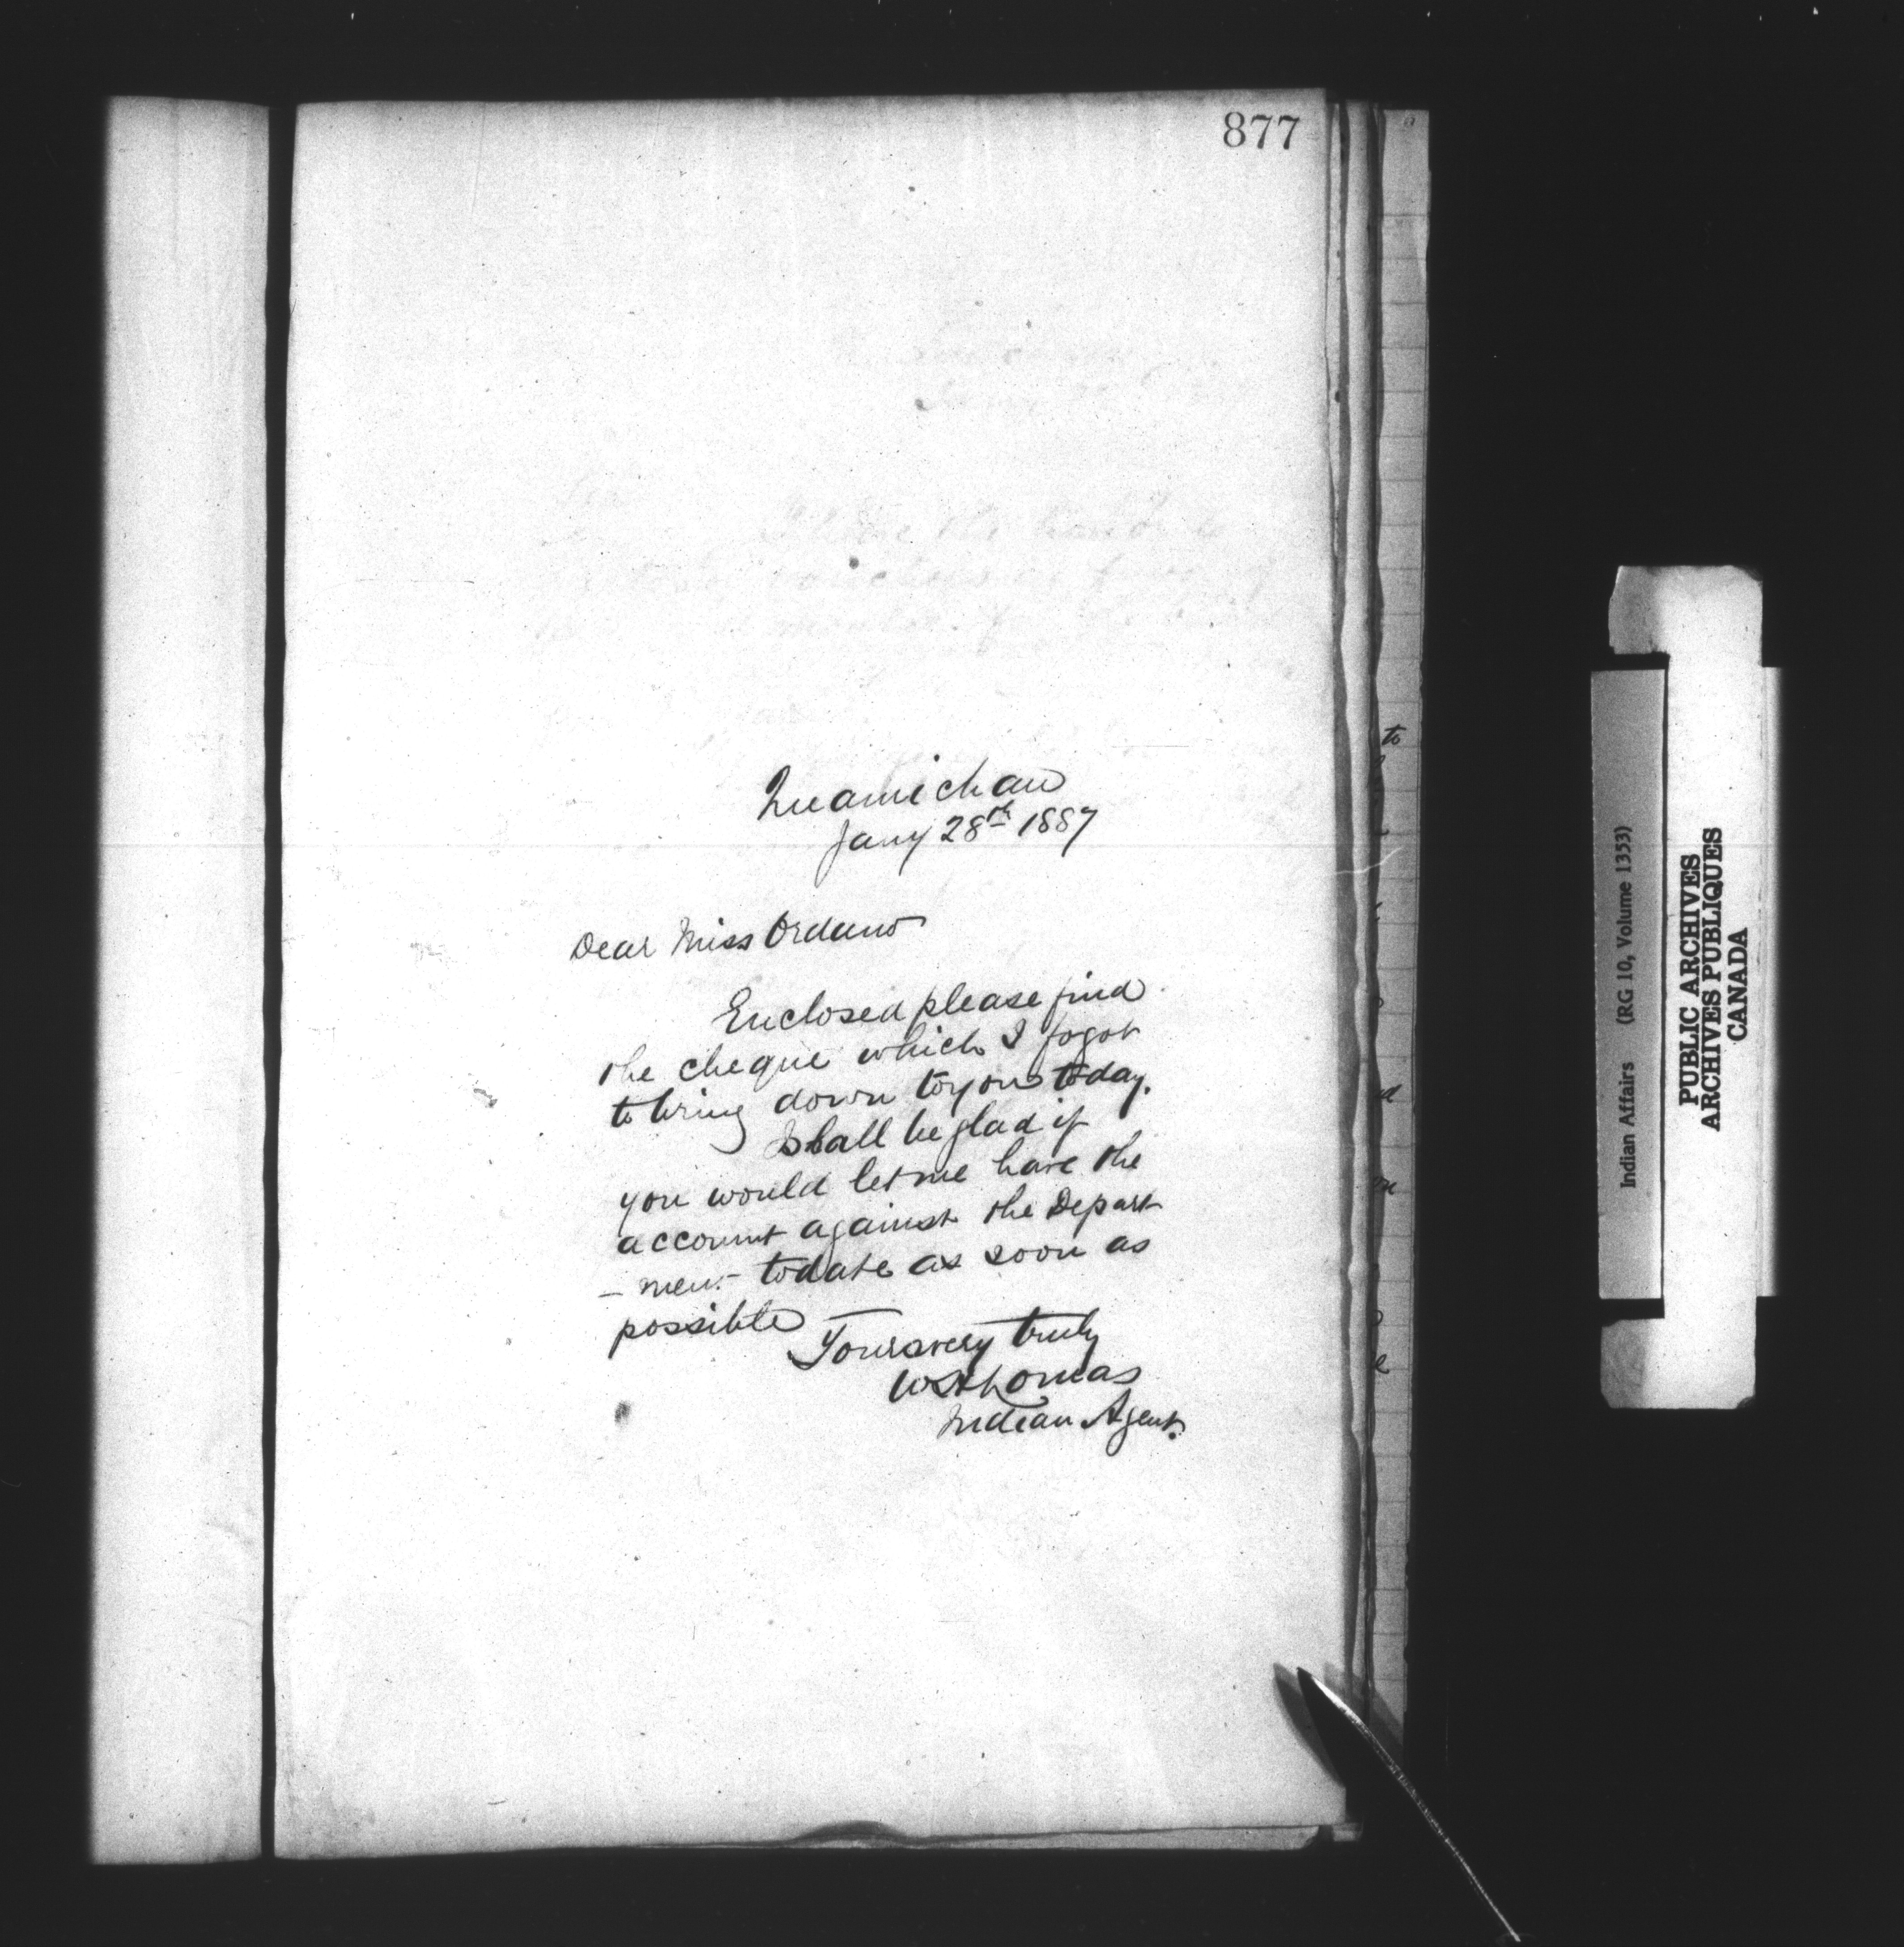 877
Quamichan
Jany 28th 1887
Dear Miss Ordano
Enclosed please find
the cheque which I fogot
to bring down to you today.
I shall be glad if
you would let me have the
account against the Depart
- ment to date as soon as
possible
Yours very truly
W H Lomas
Indian Agent.
Indian Affairs (RG 10, Volume 1353)
PUBLIC ARCHIVES
ARCHIVES PUBLIQUES
CANADA